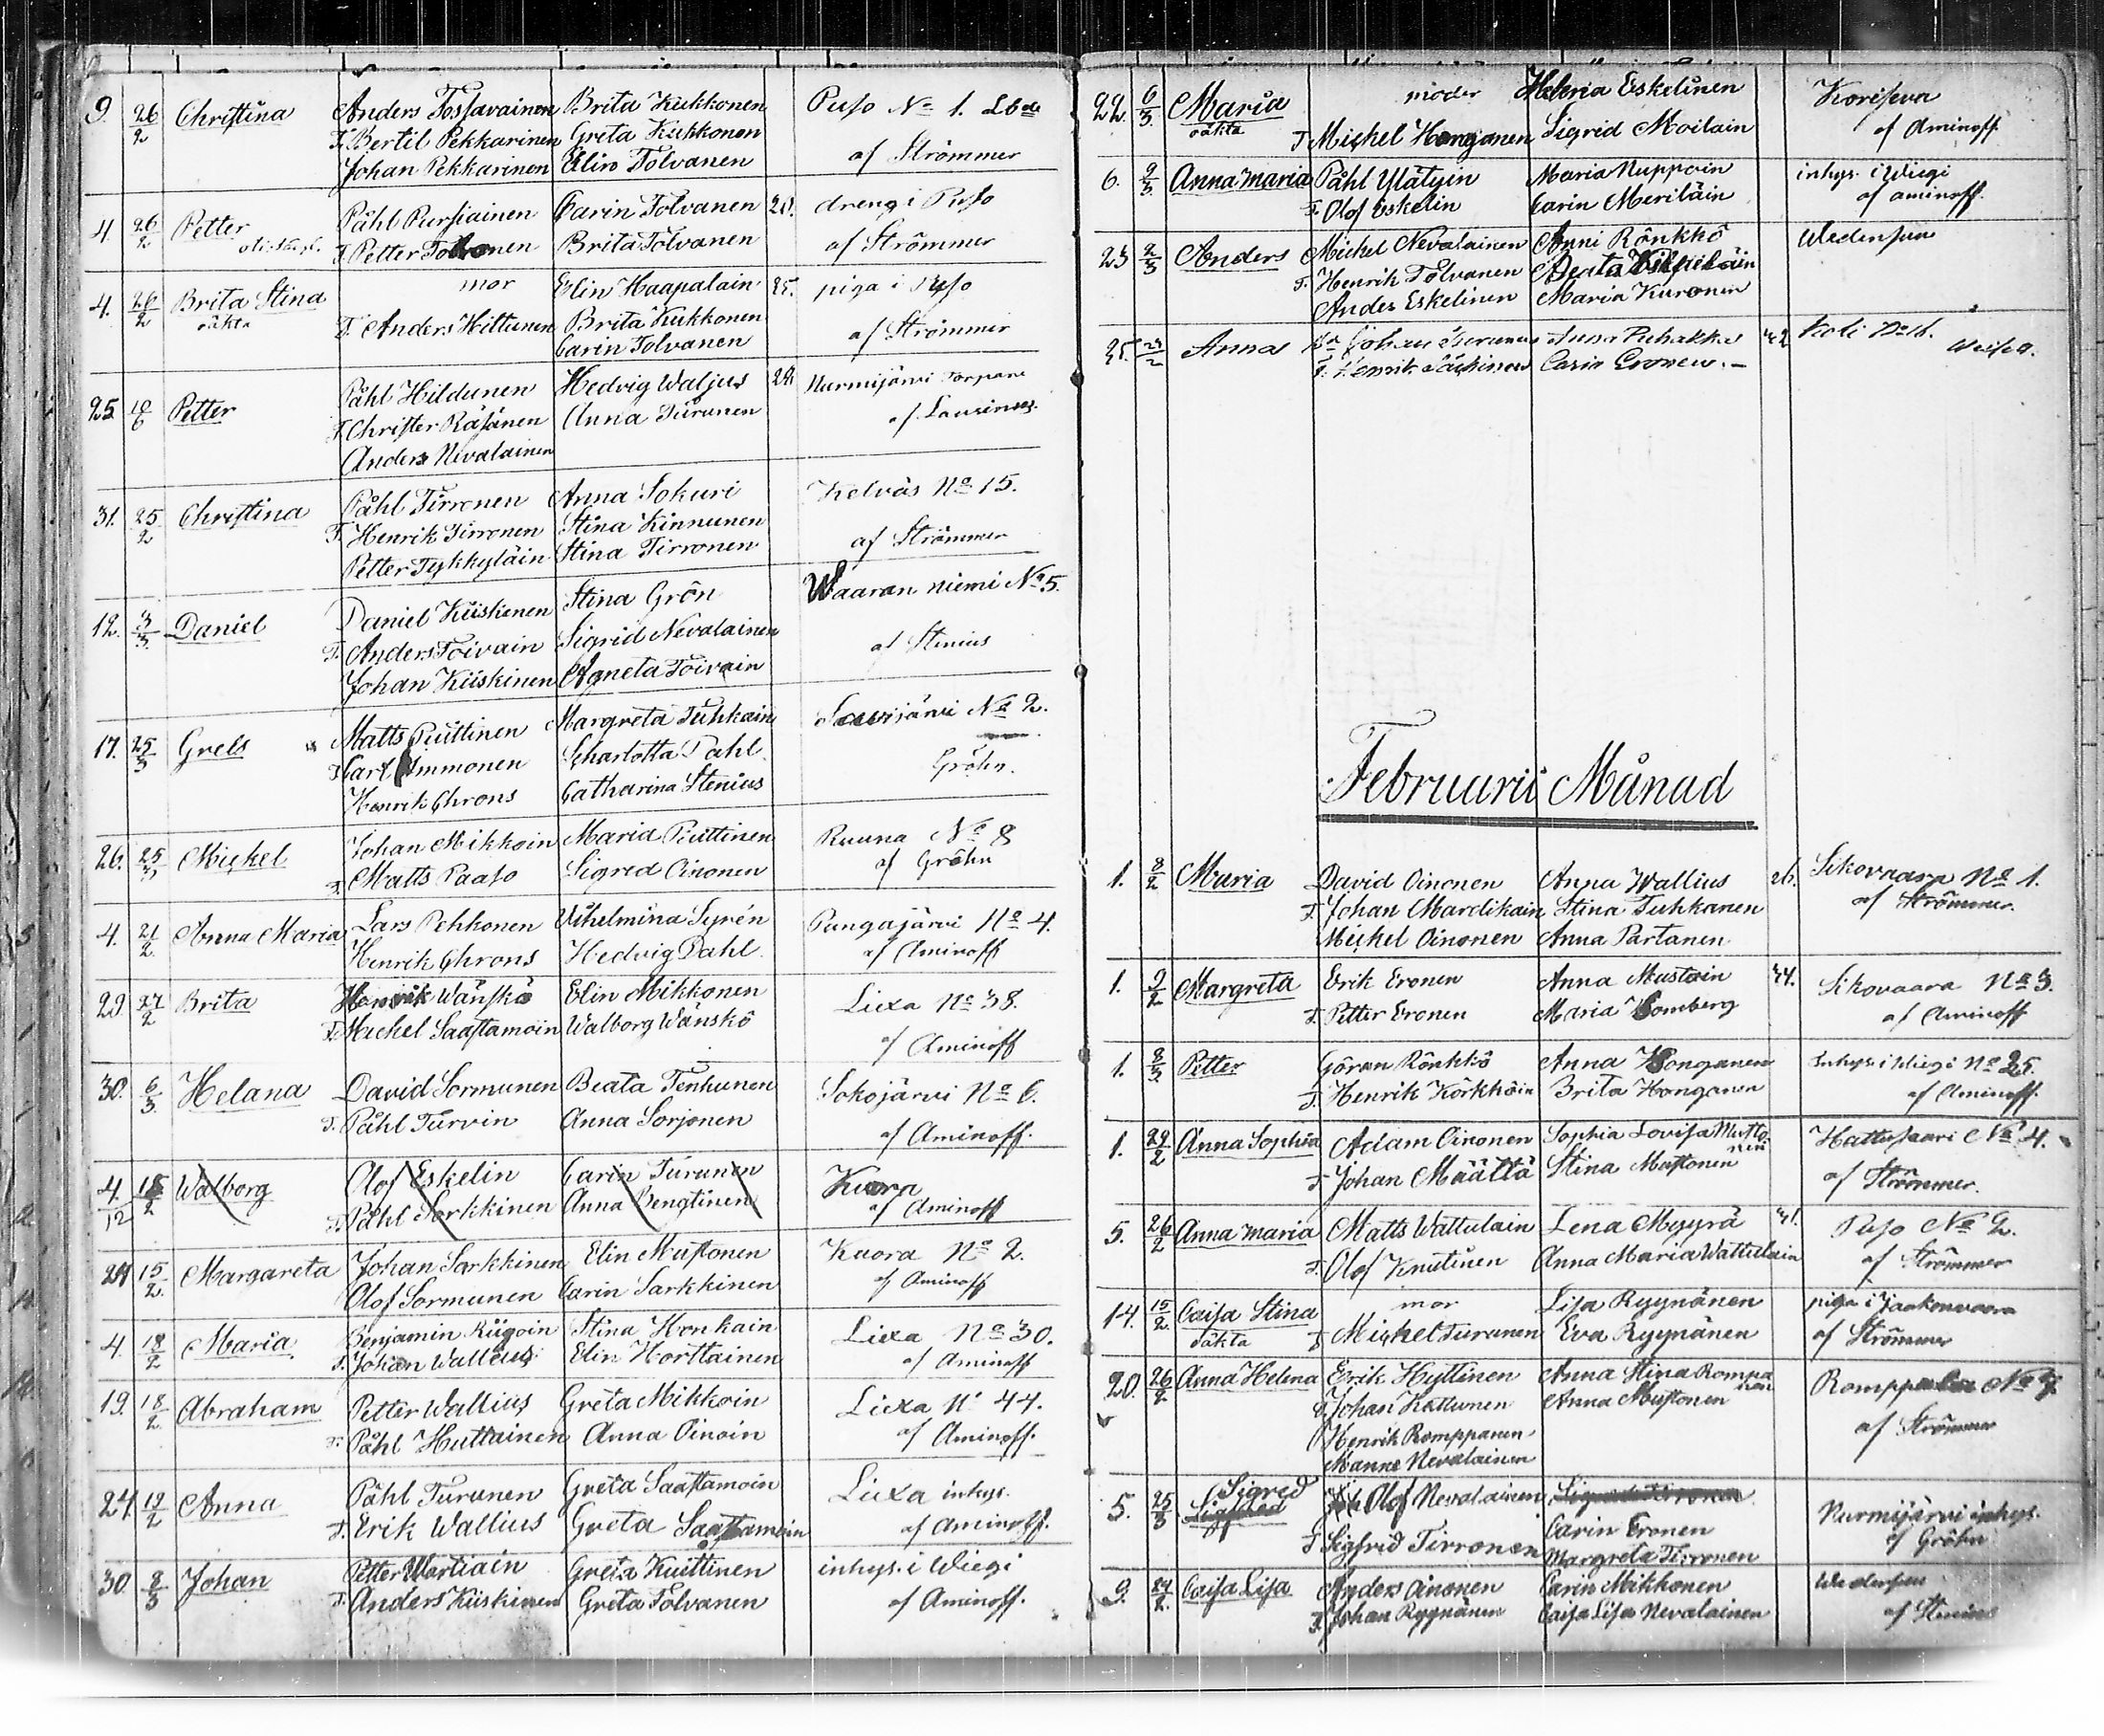 9. 26/2 Christina Anders Tossavainen Brita Kukkonen Puso No 1. Lbde
F. Bertil Pekkarinen Greta Kukkonen
Johan Pekkarinen Elin Tolvanen af Strömmer
4. 26/2 Petter Påhl Pursiainen Carin Tolvanen 28. dreng i Puso
F. Petter Tolvonen Brita Tolvanen af Strömmer
4. 26/2 Brita Stina mor Elin Haapalain 25. piga i Puso
oäkta F. Anders Hiltunen Brita Kukkonen
Carin Tolvanen af Strömmer
25. 10/6 Petter Påhl Hildunen Hedvig Waljus 28. Nurmijärvi Torpare
F. Christer Räsänen Anna Turunen af
Anders Nevalainen
31. 25/2 Christina Påhl Tirronen Anna Sokuri Kelväs No 15.
F. Henrik Tirronen Stina Kinnunen
Petter Tykkyläin Stina Tirronen af Strömmer
12. 3/3. Daniel Daniel Kiiskenen Stina Grön Waaran niemi No 5.
F. Anders Toivain Sigrid Nevalainen
Johan Kiiskinen Agneta Toivain af Stenius
17. 25/3 Grels Matts Puittinen Margreta Tuhkain Saarijärvi No 2.
F. Carl Immonen Scharlotta Pahl Gröhn.
Henrik Chrons Catharina Stenius
26. 25/3 Mickel Johan Mikkoin Maria Puittinen Ruuna No 8
F. Matts Paaso Sigred Oinonen af Gröhn
4. 21/2. Anna Maria Lars Pehkonen Vilhelmina Syrén Pungajärvi No 4.
Henrik Chrons Hedvig Pahl. af Aminoff
29. 27/2 Brita Henrik Wänskä Elin Mikkonen Lixa No 38.
F. Mickel Saastamoin Walborg Wänskö af Aminoff
30. 6/3. Helana David Sormunen Beata Tenhunen Sokojärvi No 6.
F. Påhl Turvin Anna Sorjonen af Aminoff.
4/12 18/2 Walborg Olof Eskelin Carin Turunen Kuora
F. Påhl Sarkkinen Anna Bengtinen af Aminoff
24 15/2. Margareta Johan Sarkkinen Elin Mustonen Kuora No 2.
Olof Sormunen Carin Sarkkinen af Aminoff
4. 18/2 Maria Benjamin Riigoin Stina Honkain Lixa No 30.
F. Johan Wallius Elin Horttainen af Aminoff
19. 18/2 Abraham Petter Wallius Greta Mikkoin Lixa No 44.
F. Påhl Huttainen Anna Oinoin af Aminoff.
24. 19/2 Anna Påhl Turunen Greta Saastamoin Lixa inhys.
F. Erik Wallius Greta Saastamoin af Aminoff.
30 8/3 Johan Petter Wartiain Greta Kuittinen inhys. i Wiegi
F. Anders Kiiskinen Greta Tolvanen af Aminoff.
22. 6/3. Maria moder Helena Eskelinen Koriseva
oäkta F Mickel Honganen Sigrid Moilain af Aminoff.
6. 9/3. Anna Maria Påhl Ylätyin Maria Nuppoin inhys. i Wiegi
F. Olof Eskelin Carin Meriläin af aminoff.
23 2/3 Anders Mickel Nevalainen Anni Rönkkö Wiedensuu
F. Henrik Tolvanen Beata
Anders Eskelinen Maria Kuronen
25. 23/2 Anna Johan Turunen Anna Puhakka 42 Koli No 16.
F. Henrik Carin Eronen.
Februarii Månad
1. 8/2 Maria David Oinonen Anna Wallius 26. Sikovaara No 1.
F. Johan Mardikain Stina Tuhkanen af Strömmer.
Mickel Oinonen Anna Partanen
1. 9/2 Margreta Erik Eronen Anna Mustoin 44. Sikovaara No 3.
F. Petter Eronen Maria Homberg af Aminoff
1. 8/3. Petter Göran Rönkkö Anna Honganen Inhys i Wiegi No 25.
F. Henrik Körkköin Brita Honganen af Aminoff.
1. 29/2 Anna Sophia Adam Oinonen Sophia Lovisa Musto
nen Hattusaari No 4.
F. Johan Määttä Stina Mustonen af Strömmer.
5. 26/2 Anna Maria Matts Wattulain Lena Myyrä 31. Puso No 2.
F. Olof Knutinen Anna Maria Wattulain af Strömmer
14. 15/2. Caisa Stina mor Lisa Ryynänen piga i Jaakonvaara
oäkta F Mickel Turunen Eva Ryynänen af Strömmer
20. 26/2 Anna Helena Erik Hyttinen Anna Stina Rompa
nen Romppala No 7.
F. Johan Kattunen Anna Mustonen
Henrik Romppanen af Strömmer
Manne Nevalainen
5. 25/3 Sigred Olof Nevalainen
Carin Eronen Nurmijärvi inhys.
F Sigfrid Tirronen Margreta Tirronen af Gröhn
9. 27/2. Caisa Lisa Anders Oinonen Carin Mikkonen Wiedensuu
F. Johan Ryynänen Caisa Lisa Nevalainen af Stenius